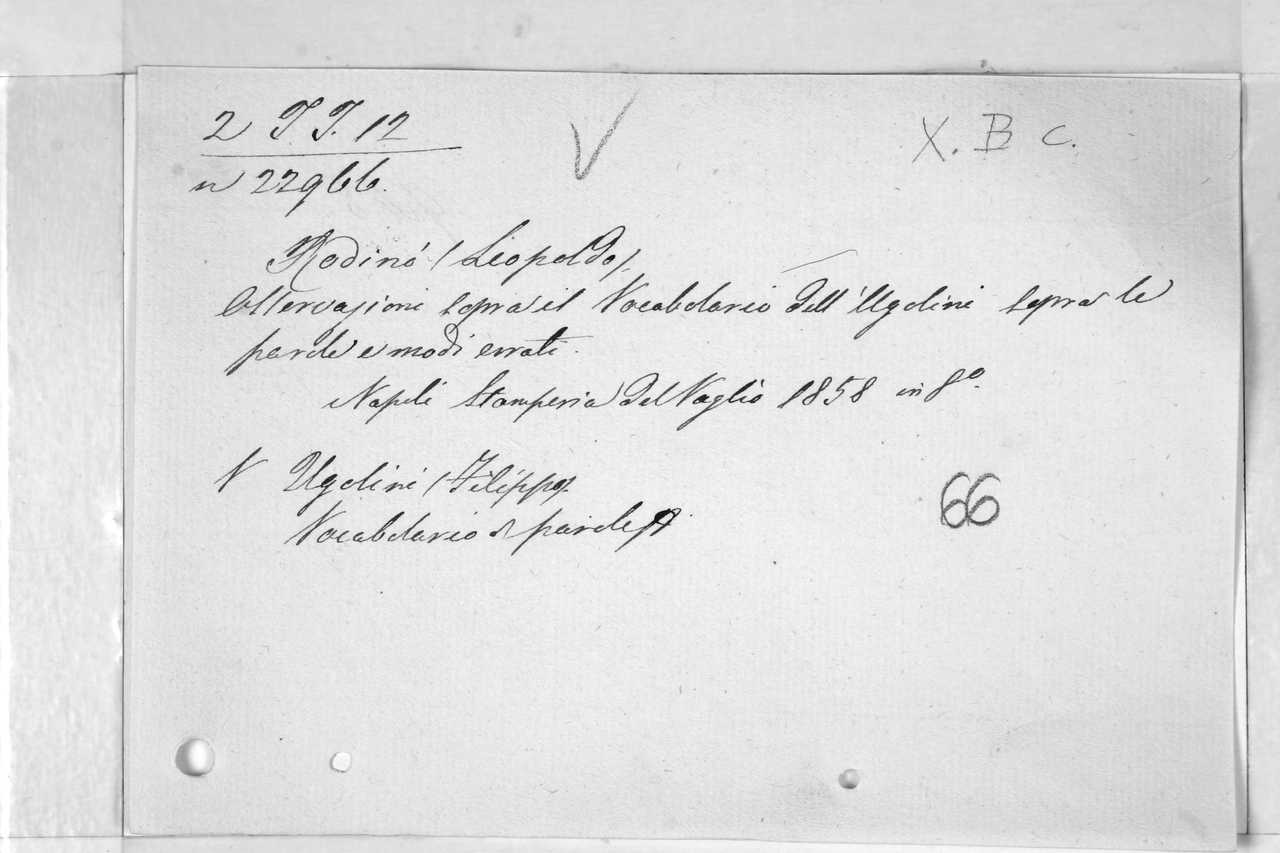 2 T T. 12
V
X. B c.
n 22966.
Rodinó (Leopoldo).
Osservazioni sopra il Vocabolario dell'Ugolini sopra le
parole e modi errati.
Napoli Stamperia del Vaglio 1858 in 8º.
V Ugolini (Filippo).
Vocabolario di parole
66